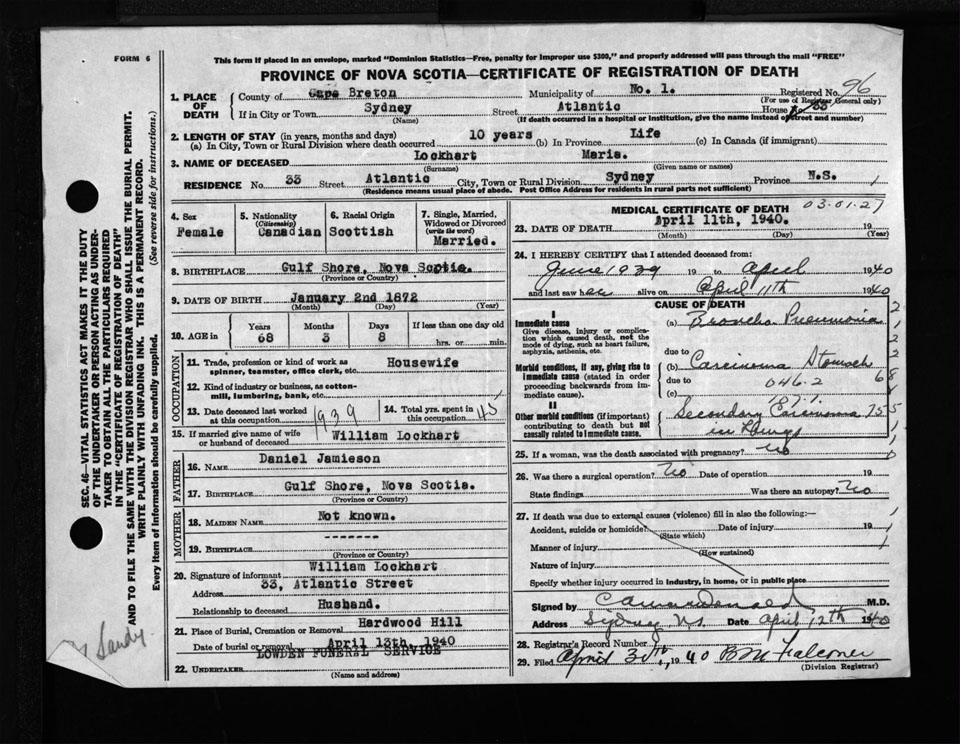 FORM 6
This form if placed in an envelope, marked "Dominion Statistics—Free, penalty for improper use $300," and properly addressed will pass through the mail "FREE"
PROVINCE OF NOVA SCOTIA—CERTIFICATE OF REGISTRATION OF DEATH
1. PLACE OF DEATH County of Cape Breton Municipality of No. 1. Registered No. 96
(For use of Registrar General only)
If in City or Town Sydney Street Atlantic House No 33
(Name) (If death occurred in a hospital or institution, give the name instead of street and number)
2. LENGTH OF STAY (in years, months and days)
(a) In City, Town or Rural Division where death occurred 10 years (b) In Province Life (c) In Canada (if immigrant)
3. NAME OF DECEASED Lockhart Maria.
(Surname) (Given name or names)
RESIDENCE No. 33 Street Atlantic City, Town or Rural Division Sydney Province N.S.
(Residence means usual place of abode. Post Office Address for residents in rural parts not sufficient)
SEC. 46—VITAL STATISTICS ACT MAKES IT THE DUTY
OF THE UNDERTAKER OR PERSON ACTING AS UNDER-
TAKER TO OBTAIN ALL THE PARTICULARS REQUIRED
IN THE "CERTIFICATE OF REGISTRATION OF DEATH"
AND TO FILE THE SAME WITH THE DIVISION REGISTRAR WHO SHALL ISSUE THE BURIAL PERMIT.
WRITE PLAINLY WITH UNFADING INK. THIS IS A PERMANENT RECORD.
Every item of information should be carefully supplied. (See reverse side for instructions.)
4. Sex Female
5. Nationality (Citizenship) Canadian
6. Racial Origin Scottish
7. Single, Married, Widowed or Divorced (write the word) Married.
8. BIRTHPLACE Gulf Shore, Nova Scotia.
(Province or Country)
9. DATE OF BIRTH January 2nd 1872
(Month) (Day) (Year)
10. AGE in Years 68 Months 3 Days 8 If less than one day old hrs. or min.
OCCUPATION
11. Trade, profession or kind of work as spinner, teamster, office clerk, etc. Housewife
12. Kind of industry or business, as cotton-mill, lumbering, bank, etc.
13. Date deceased last worked at this occupation 1939
14. Total yrs. spent in this occupation 45
15. If married give name of wife or husband of deceased William Lockhart
FATHER
16. Name Daniel Jamieson
17. Birthplace Gulf Shore, Nova Scotia.
(Province or Country)
MOTHER
18. Maiden Name Not known.
19. Birthplace -------
(Province or Country)
20. Signature of informant William Lockhart
Address 33, Atlantic Street
Relationship to deceased Husband.
21. Place of Burial, Cremation or Removal Hardwood Hill
Date of burial or removal April 13th, 1940
22. UNDERTAKER LOWDEN FUNERAL SERVICE
(Name and address)
MEDICAL CERTIFICATE OF DEATH
03-01-27
23. DATE OF DEATH April 11th, 1940. 19
(Month) (Day) (Year)
24. I HEREBY CERTIFY that I attended deceased from:
June 1939 19 to April 1940
and last saw her alive on April 11th 1940
CAUSE OF DEATH
I
Immediate cause
Give disease, injury or complication which caused death, not the mode of dying, such as heart failure, asphyxia, asthenia, etc.
(a) Broncho Pneumonia
due to
Morbid conditions, if any, giving rise to immediate cause (stated in order proceeding backwards from immediate cause).
(b) Carcinoma Stomach
due to 046.2
(c) 107.1.
II
Other morbid conditions (if important) contributing to death but not causally related to immediate cause.
Secondary Carcinoma
in Lungs
25. If a woman, was the death associated with pregnancy? No
26. Was there a surgical operation? No Date of operation 19
State findings Was there an autopsy? No
27. If death was due to external causes (violence) fill in also the following:—
Accident, suicide or homicide? Date of injury 19
(State which)
Manner of injury
(How sustained)
Nature of injury
Specify whether injury occurred in industry, in home, or in public place
Signed by M.D.
Address Sydney NS. Date April 12th 1940
28. Registrar's Record Number
29. Filed April 30th, 1940 B M Falconer
(Division Registrar)